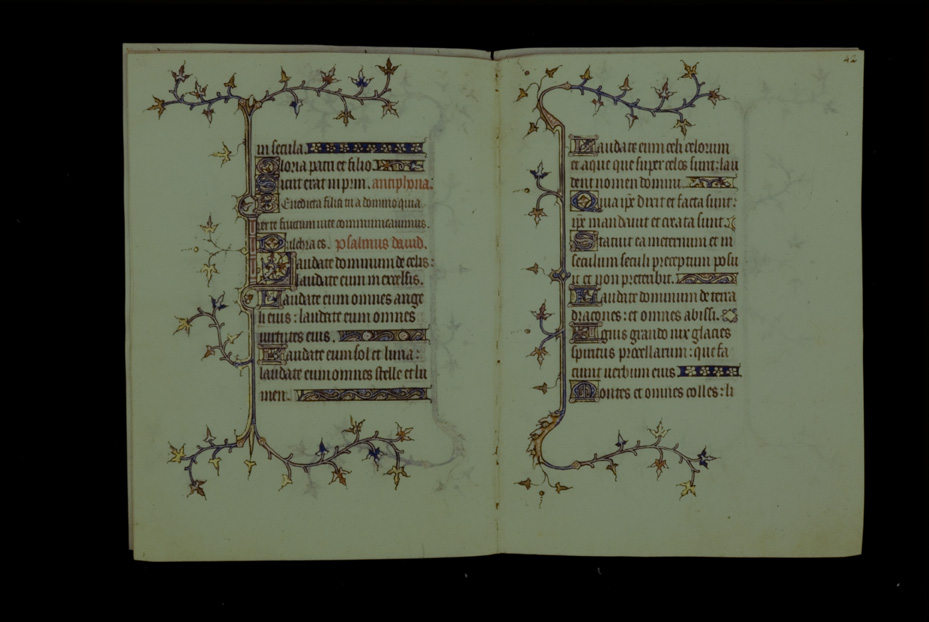 in secula.
Gloria patri et filio.
Sicut erat in prin. antiphona.
Benedicta filia tu a domino quia
per te fructum vite communicavimus.
Pulchra es. psalmus david.
Laudate dominum de celis:
laudate eum in excelsis.
Laudate eum omnes ange
li eius: laudate eum omnes
virtutes eius.
Laudate eum sol et luna:
laudate eum omnes stelle et lu
men.
Laudate eum celi celorum
et aque que super celos sunt: lau
dent nomen domini.
Quia ipse dixit et facta sunt:
ipse mandavit et creata sunt.
Statuit ea in eternum et in
seculum seculi preceptum posu
it et non preteribit.
Laudate dominum de terra
dracones: et omnes abissi.
Ignis grando nix glacies
spiritus procellarum: que fa
ciunt verbum eius
Montes et omnes colles: li